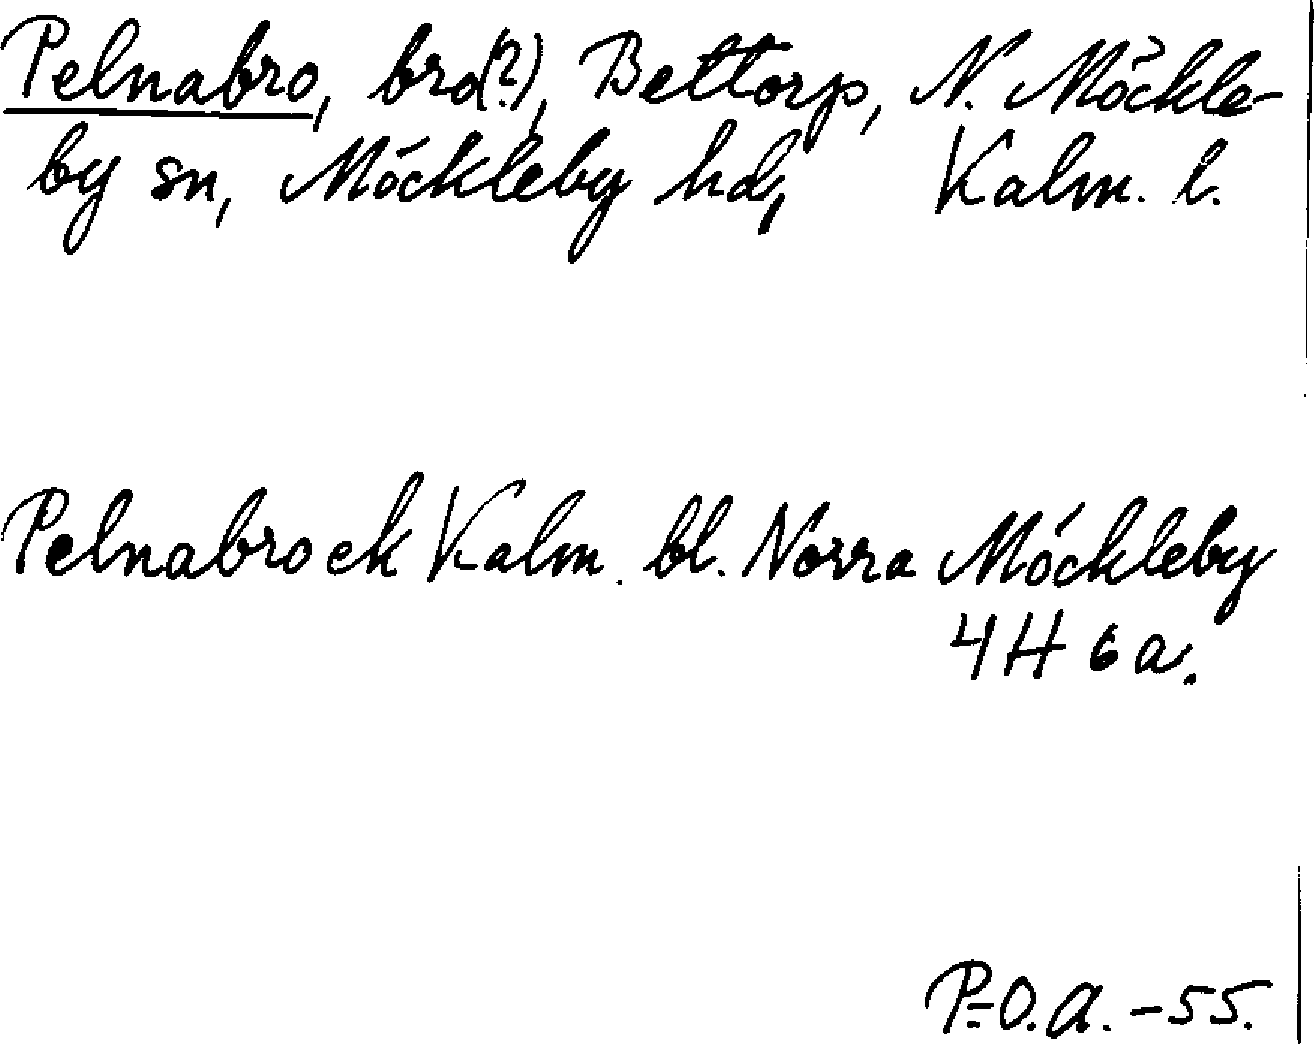 Pelnabro, bro(?), Bettorp, N. Möckle-
by sn, Möckleby hd, Kalm. l.
Pelnabro ek Kalm. bl. Norra Möckleby
4H 6a.
P-O.A. -55.